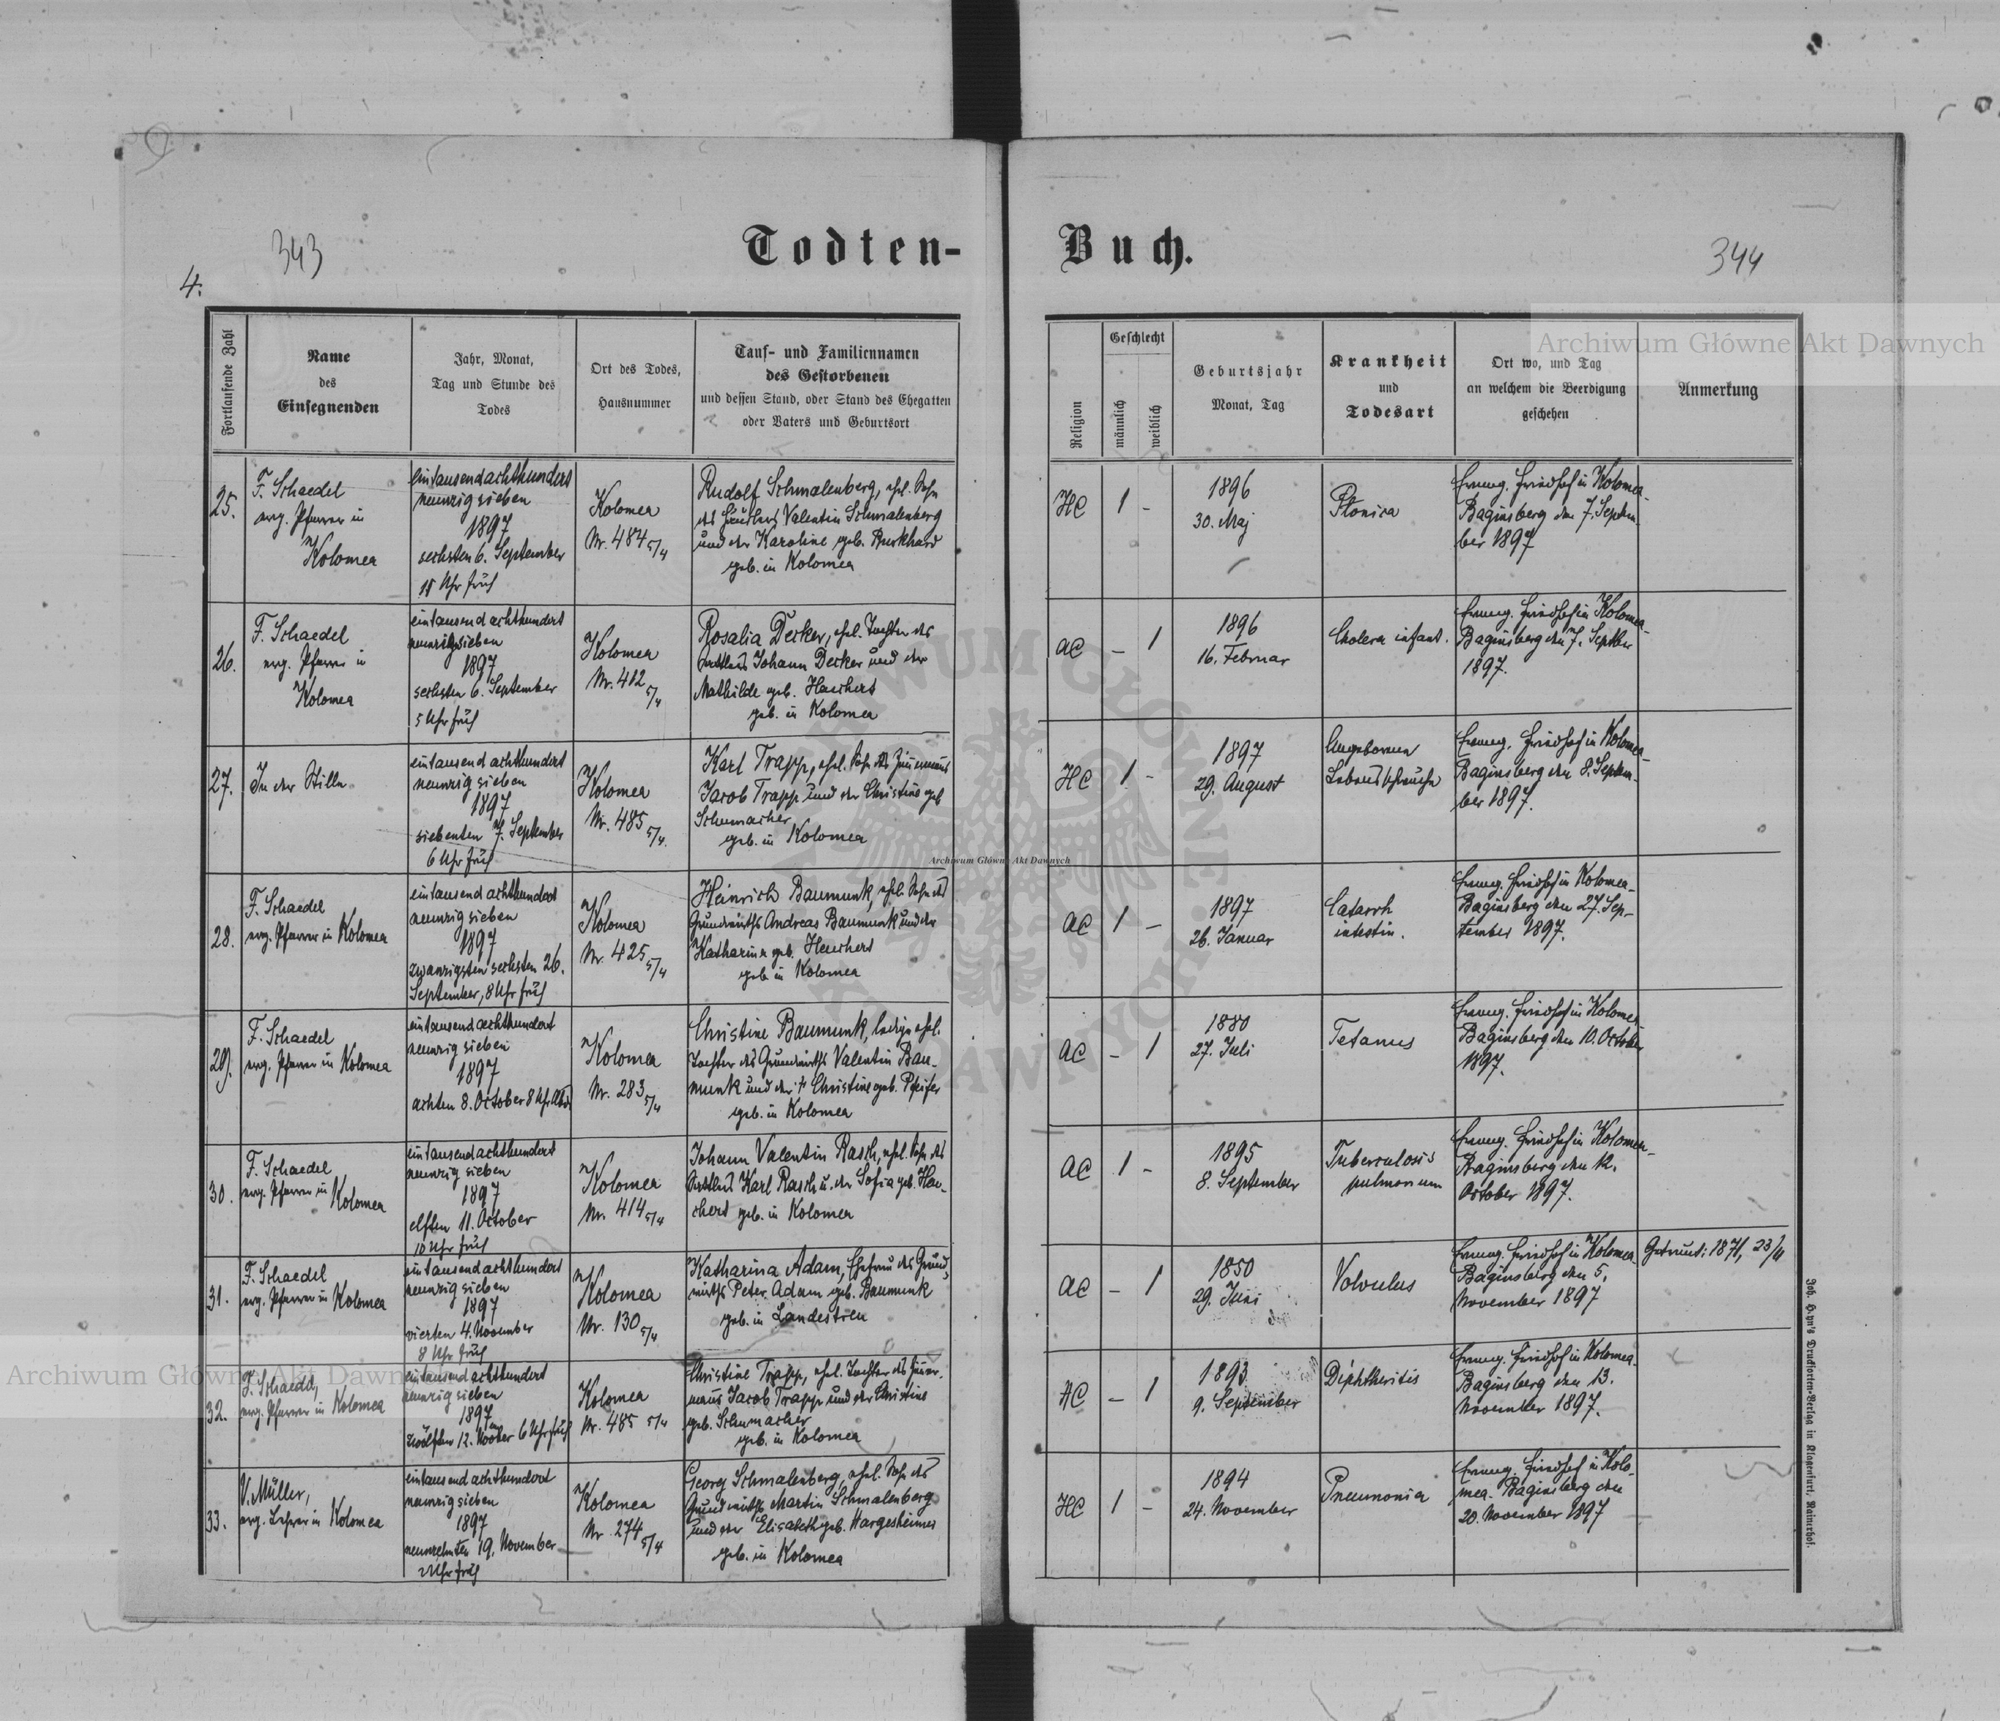 343
4.
Todten-
Buch.
344
Fortlaufende Zahl
Name
des
Einsegnenden
Jahr, Monat,
Tag und Stunde des
Todes
Ort des Todes,
Hausnummer
Tauf- und Familiennamen
des Gestorbenen
und dessen Stand, oder Stand des Ehegatten
oder Vaters und Geburtsort
Religion
Geschlecht
männlich
weiblich
Geburtsjahr
Monat, Tag
Krankheit
und
Todesart
Ort wo, und Tag
an welchem die Beerdigung
geschehen
Anmerkung
25.
F. Schaedel
evg. Pfarrer in
Kolomea
eintausendachthundert
neunzigsieben
1897
sechsten 6. September
Uhr früh
Kolomea
Nr. 484 5/4
Rudolf Schmalenberg, ehl. Sohn
des Häuslers Valentin Schmalenberg
und der Karoline geb. Burkhard
geb. in Kolomea
HC
1
-
1896
30. Maj
Evang. Friedhof in Kolomea-
Baginsberg den 7. Septem-
ber 1897
26.
F. Schaedel
evg. Pfarrer in
Kolomea
eintausendachthundert
neunzigsieben
1897
sechsten 6. September
5 Uhr früh
Kolomea
Nr. 412 5/4
Rosalia Decker, ehl. Tochter des
Johann Decker und der
Mathilde geb. Haechert
geb. in Kolomea
AC
-
1
1896
16. Februar
Cholera infant.
Evang. Friedhof in Kolomea-
Baginsberg den 7. Septber
1897.
27.
In der Stille
eintausendachthundert
neunzig sieben
1897
siebenten 7. September
6 Uhr früh
Kolomea
Nr. 485 5/4.
Karl Trapp, ehl. Sohn des Zimmermanns
Jacob Trapp und der Christine geb
Schumacher
geb. in Kolomea
HC
1
-
1897
29. August
Angeborenen
Lebensschwäche
Evang. Friedhof in Kolomea-
Baginsberg den 8. Septem-
ber 1897.
28.
F. Schaedel
evg. Pfarrer in Kolomea
eintausendachthundert
neunzig sieben
1897
zwanzigsten sechsten 26.
September, 8 Uhr früh
Kolomea
Nr. 425 5/4
Heinrich Baumunk, ehl. Sohn des
Grundwirths Andreas Baumunk und der
Katharina geb. Haechert
geb in Kolomea
AC
1
-
1897
26. Januar
Catarrh
intestin.
Evang. Friedhof in Kolomea-
Baginsberg den 27. Sep-
tember 1897.
29.
F. Schaedel
evg. Pfarrer in Kolomea
eintausendachthundert
neunzig sieben
1897
achten 8. October 8 Uhr Abds
Kolomea
Nr. 283 5/4
Christine Baumunk, ledige ehl.
Tochter des Grundwirths Valentin Bau-
munk und der † Christine geb. Pfeifer
geb. in Kolomea
AC
-
1
1880
27. Juli
Tetanus
Evang. Friedhof in Kolomea
Baginsberg den 10. October
1897.
30.
F. Schaedel
evg. Pfarrer in Kolomea
eintausendachthundert
neunzig sieben
1897
elften 11. October
10 Uhr früh
Kolomea
Nr. 414 5/4
Johann Valentin Rasch, ehl. Sohn des
Karl Rasch u. der Sofia geb. Hae-
chert geb. in Kolomea
AC
1
-
1895
8. September
Tuberculosis
pulmonum
Evang. Friedhof in Kolomea-
Baginsberg den 12.
October 1897.
31.
F. Schaedel
evg. Pfarrer in Kolomea
eintausendachthundert
neunzig sieben
1897
vierten 4. November
8 Uhr früh
Kolomea
Nr. 130 5/4
Katharina Adam, Ehefrau des Grund-
wirths Peter Adam geb. Baumunk
geb. in Landestreu
AC
-
1
1850
29. Juni
Volvulus
Evang. Friedhof in Kolomea
Baginsberg den 5.
November 1897
Getraut: 1871, 23/4
32.
F. Schaedel,
evg. Pfarrer in Kolomea
eintausendachthundert
neunzig sieben
1897
zwölften 12. November 6 Uhr früh
Kolomea
Nr. 485 5/4
Christine Trapp, ehl. Tochter des Zimmer-
manns Jacob Trapp und der Christine
geb. Schumacher
geb. in Kolomea
HC
-
1
1893
9. September
Diphtheritis
Evang. Friedhof in Kolomea
Baginsberg den 13.
November 1897.
33.
V. Müller,
evg. Lehrer in Kolomea
eintausendachthundert
neunzigsieben
1897
neunzehnten 19. November
2 Uhr früh
Kolomea
Nr. 274 5/4
Georg Schmalenberg, ehl. Sohn des
Grundwirths Martin Schmalenberg
und der Elisabeth geb. Hargesheimer
geb. in Kolomea
HC
1
-
1894
24. November
Pneumonia
Evang. Friedhof in Kolo-
mea-Baginsberg den
20. November 1897
Joh. Hyn's Drucksorten-Verlag in Klagenfurt, Rainerhof.
Archiwum Główne Akt Dawnych
Archiwum Główne Akt Dawnych
Archiwum Główne Akt Dawnych
ARCHIWUM GŁÓWNE AKT DAWNYCH